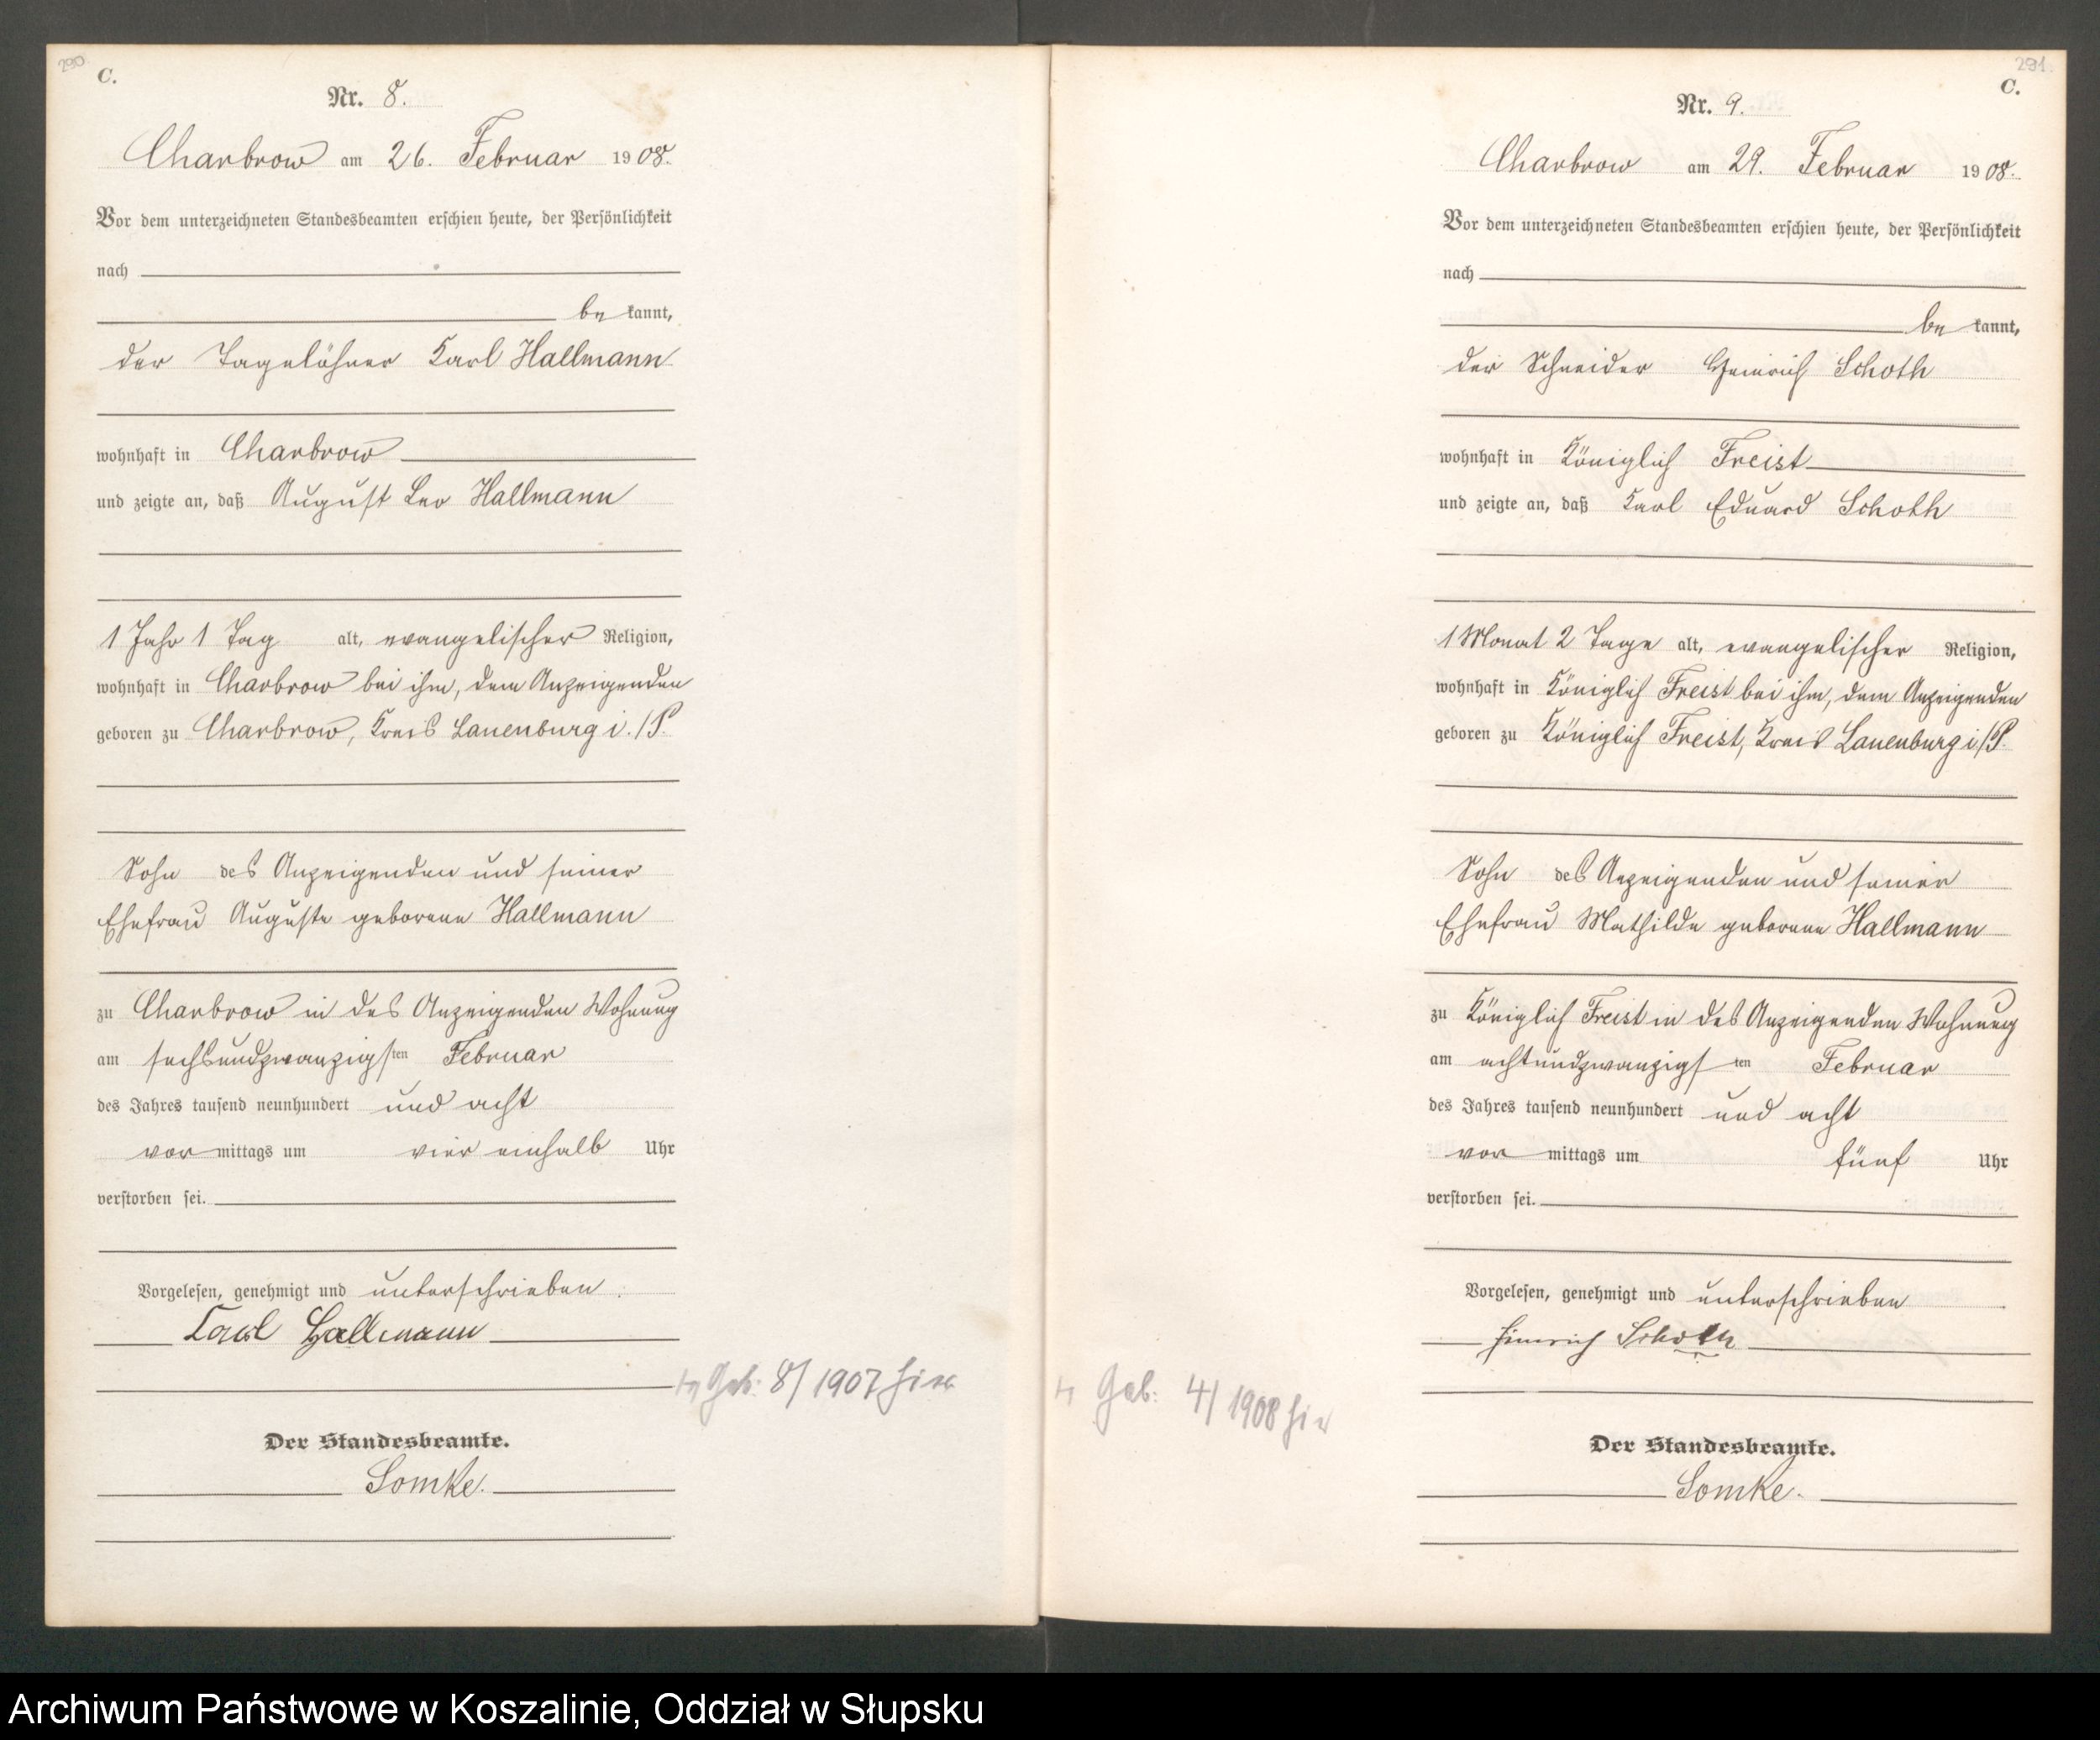 290
C.
Nr. 8.
Charbrow am 26. Februar 1908.
Vor dem unterzeichneten Standesbeamten erschien heute, der Persönlichkeit
nach
be kannt,
der Tagelöhner Karl Hallmann
wohnhaft in Charbrow
und zeigte an, daß August Leo Hallmann
1 Jahr 1 Tag alt, evangelischer Religion,
wohnhaft in Charbrow bei ihm, dem Anzeigenden
geboren zu Charbrow, Kreis Lauenburg i./P.
Sohn des Anzeigenden und seiner
Ehefrau Auguste geborene Hallmann
zu Charbrow in des Anzeigenden Wohnung
am sechsundzwanzigsten Februar
des Jahres tausend neunhundert und acht
vor mittags um vier einhalb Uhr
verstorben sei.
Vorgelesen, genehmigt und unterschrieben.
Karl Hallmann
Geb: 8/1907 hier
Der Standesbeamte.
Somke.
291.
C.
Nr. 9.
Charbrow am 29. Februar 1908.
Vor dem unterzeichneten Standesbeamten erschien heute, der Persönlichkeit
nach
be kannt,
der Schneider Heinrich Schoth
wohnhaft in Königlich Freist
und zeigte an, daß Karl Eduard Schoth
1 Monat 2 Tage alt, evangelischer Religion,
wohnhaft in Königlich Freist bei ihm, dem Anzeigenden
geboren zu Königlich Freist, Kreis Lauenburg i/P.
Sohn des Anzeigenden und seiner
Ehefrau Mathilde geborene Hallmann
zu Königlich Freist in des Anzeigenden Wohnung
am achtundzwanzigsten Februar
des Jahres tausend neunhundert und acht
vor mittags um fünf Uhr
verstorben sei.
Vorgelesen, genehmigt und unterschrieben
Heinrich Schoth
Geb: 4/1908 hier
Der Standesbeamte.
Somke.
Archiwum Państwowe w Koszalinie, Oddział w Słupsku